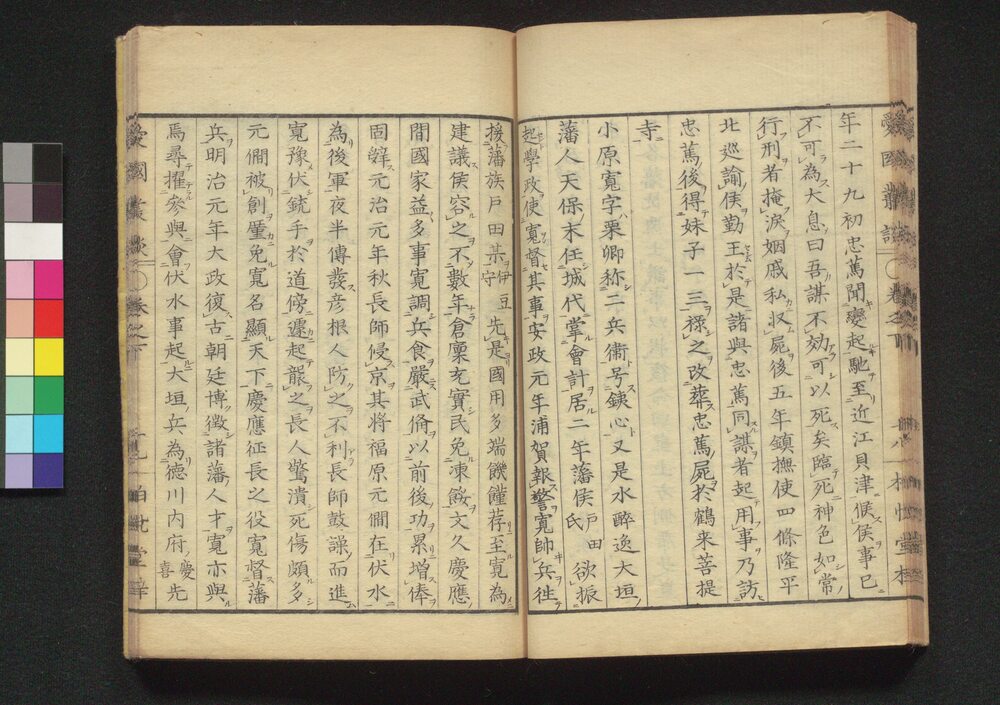 年二十九初忠篤聞變起馳至近江貝津候侯事已
不可為大息曰吾謀不効可以死矣臨死神色如常
行刑者掩淚姻戚私収屍後五年鎮撫使四條隆平
北巡諭侯勤王於是諸與忠篤同謀者起用事乃訪
忠篤後得妹子一三禄之改葬忠篤屍於鶴来菩提
寺
小原寬字栗卿称二兵衛号鉄心又是水醉逸大垣
藩人天保末任城代掌會計居二年藩侯戸田氏欲振
起學政使寬督其事安政元年浦賀報警寬帥兵徃
援藩族戸田某伊豆守先是國用多端饑饉荐至寬為
建議侯容之不數年倉廩充實民免凍餒文久慶應
間國家益多事寬調兵食嚴武俻以前後功累增俸
固辤元治元年秋長師侵京其將福原元僴在伏水
為後軍夜半傳發彦根人防之不利長師鼓譟而進
寬豫伏銃手於道傍遽起襲之長人驚潰死傷頗多
元僴被創厪免寬名顯天下慶應征長之役寬督藩
兵明治元年大政復古朝廷博徴諸藩人才寬亦與
焉尋擢參與會伏水事起大垣兵為德川内府慶喜先